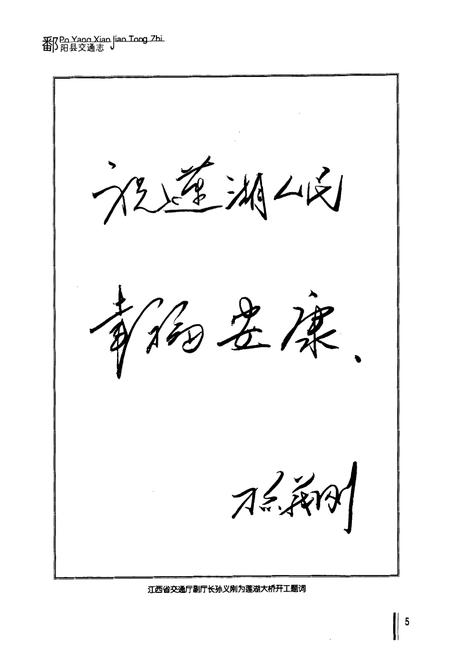 鄱 Po Yang Xian Jiao Tong Zhi
阳县交通志
祝莲湖人民
幸福安康、
孙义刚
江西省交通厅副厅长孙义刚为莲湖大桥开工题词
5